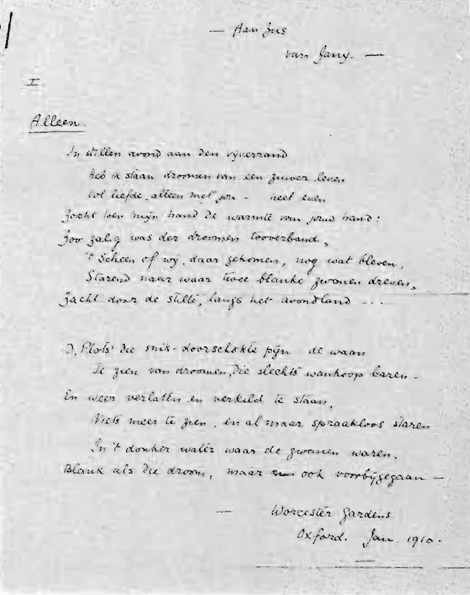 — Aan Zus
van Jany. —
I
Alleen.
In stillen avond aan den vijverrand
Heb ik staan droomen van een zuiver leven
Vol liefde, alleen met jou - heel even
Zocht toen mijn hand de warmte van jouw hand!
Zoo zalig was der droomen tooverband,
't Scheen of wij, daar gekomen, nog wat bleven,
Starend naar waar twee blanke zwanen dreven,
Zacht door de stilte, langs het avondland ...
O, Plots die snik-doorschokte pijn de waan
Te zien van droomen, die slechts wanhoop baren -
En weer verlaten en verkild te staan,
Niets meer te zien, en al maar spraakloos staren
In 't donker water waar de zwanen waren,
Blank als die droom, maar ook voorbijgegaan —
— Worcester Gardens
Oxford. Jan. 1910.